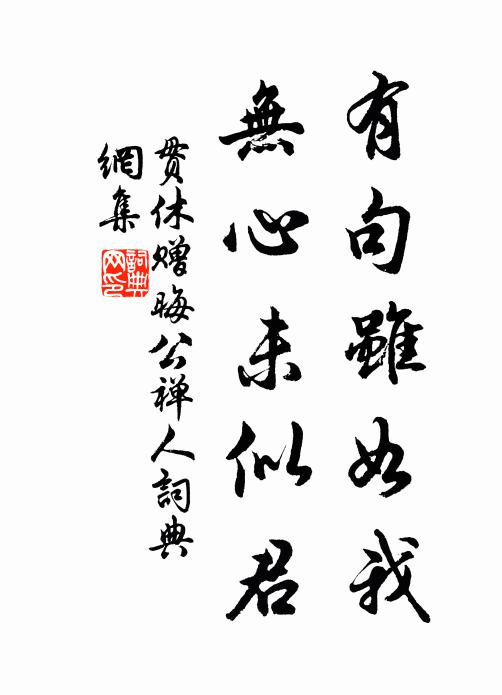 有句雖如我
無心未似君
贯休赠晦公禅人詞典
網集
詞典网印